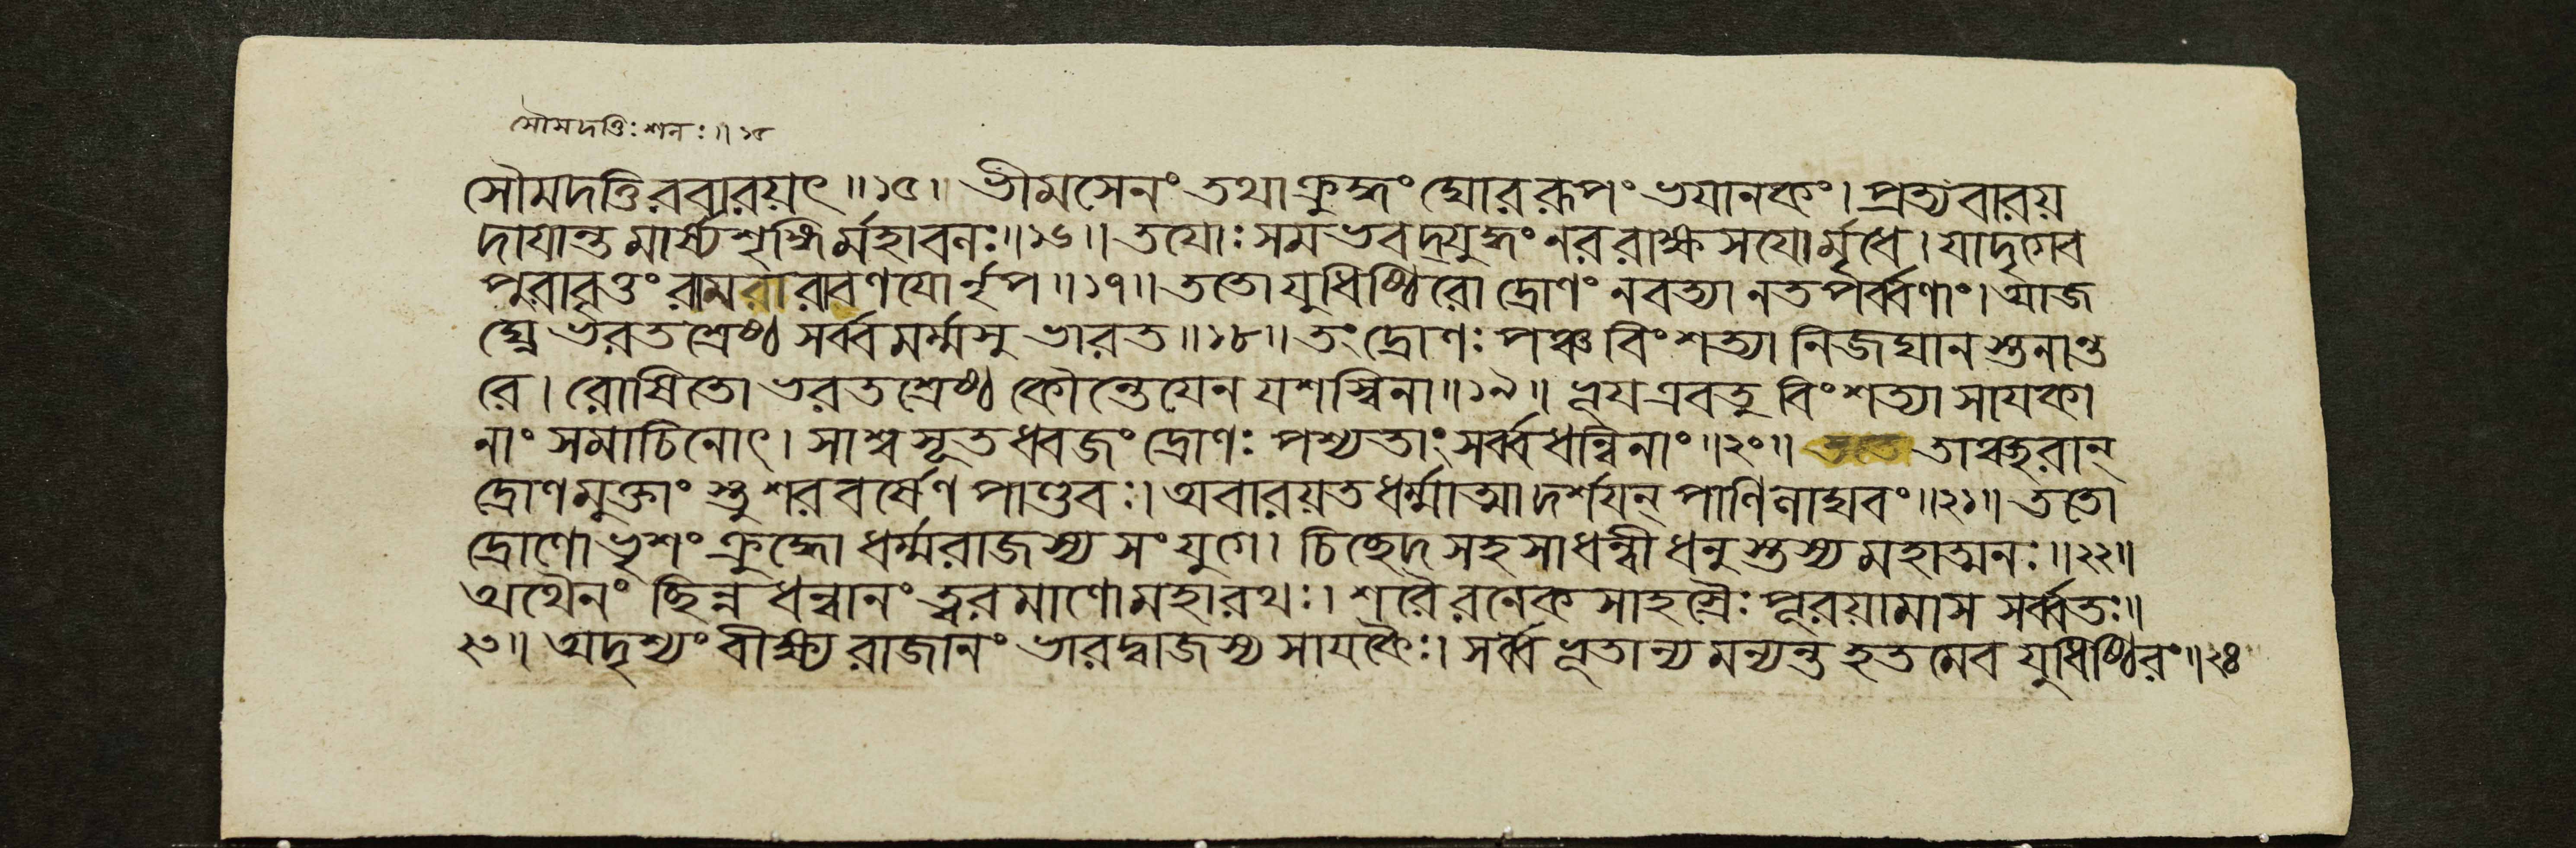 সৌমদত্তিঃ শনঃ॥ ১৫
সৌমদত্তিরবারয়ৎ॥ ১৫। ভীমসেনং তথা ক্রুদ্ধং ঘোররূপং ভযানকং। প্রত্যবারয়
দাযান্তমার্ষ্যশৃঙ্গির্মহাবলঃ॥ ১৬॥ তযোঃ সমভবদ্যুদ্ধং নররাক্ষসযোর্মৃধে। যাদৃগেব
পুরাবৃত্তং রামরারাবণযোর্নৃপ॥ ১৭॥ ততো যুধিষ্ঠিরো দ্রোণং নবত্যা নতপর্ব্বণাং। আজ
ঘ্নে ভরতশ্রেষ্ঠ সর্ব্বমর্ম্মসু ভারত॥ ১৮॥ তং দ্রোণঃ পঞ্চবিংশত্যা নিজঘান স্তনান্ত
রে। রোষিতো ভরতশ্রেষ্ঠ কৌন্তেযেন যশস্বিনা॥ ১৯॥ ভূয এব তু বিংশত্যা সাযকা
নাং সমাচিনোৎ। সাশ্বসূতধ্বজং দ্রোণঃ পশ্যতাং সর্ব্বধন্বিনাং॥ ২০॥ তান্শরান্
দ্রোণমুক্তাংস্তু শরবর্ষেণ পাণ্ডবঃ। অবারয়ত ধর্ম্মাত্মা দর্শযন্ পাণিলাঘবং॥ ২১॥ ততো
দ্রোণো ভৃশং ক্রুদ্ধো ধর্ম্মরাজস্য সংযুগে। চিচ্ছেদ সহসা ধন্বী ধনুস্তস্য মহাত্মনঃ॥ ২২॥
অথৈনং ছিন্নধন্বানং ত্বরমাণো মহারথঃ। শরৈরনেকসাহস্রৈঃ পূরয়ামাস সর্ব্বতঃ॥
২৩॥ অদৃশ্যং বীক্ষ্য রাজানং ভারদ্বাজস্য সাযকৈঃ। সর্ব্বভূতান্যমন্যন্ত হতমেব যুধিষ্ঠিরং॥ ২৪